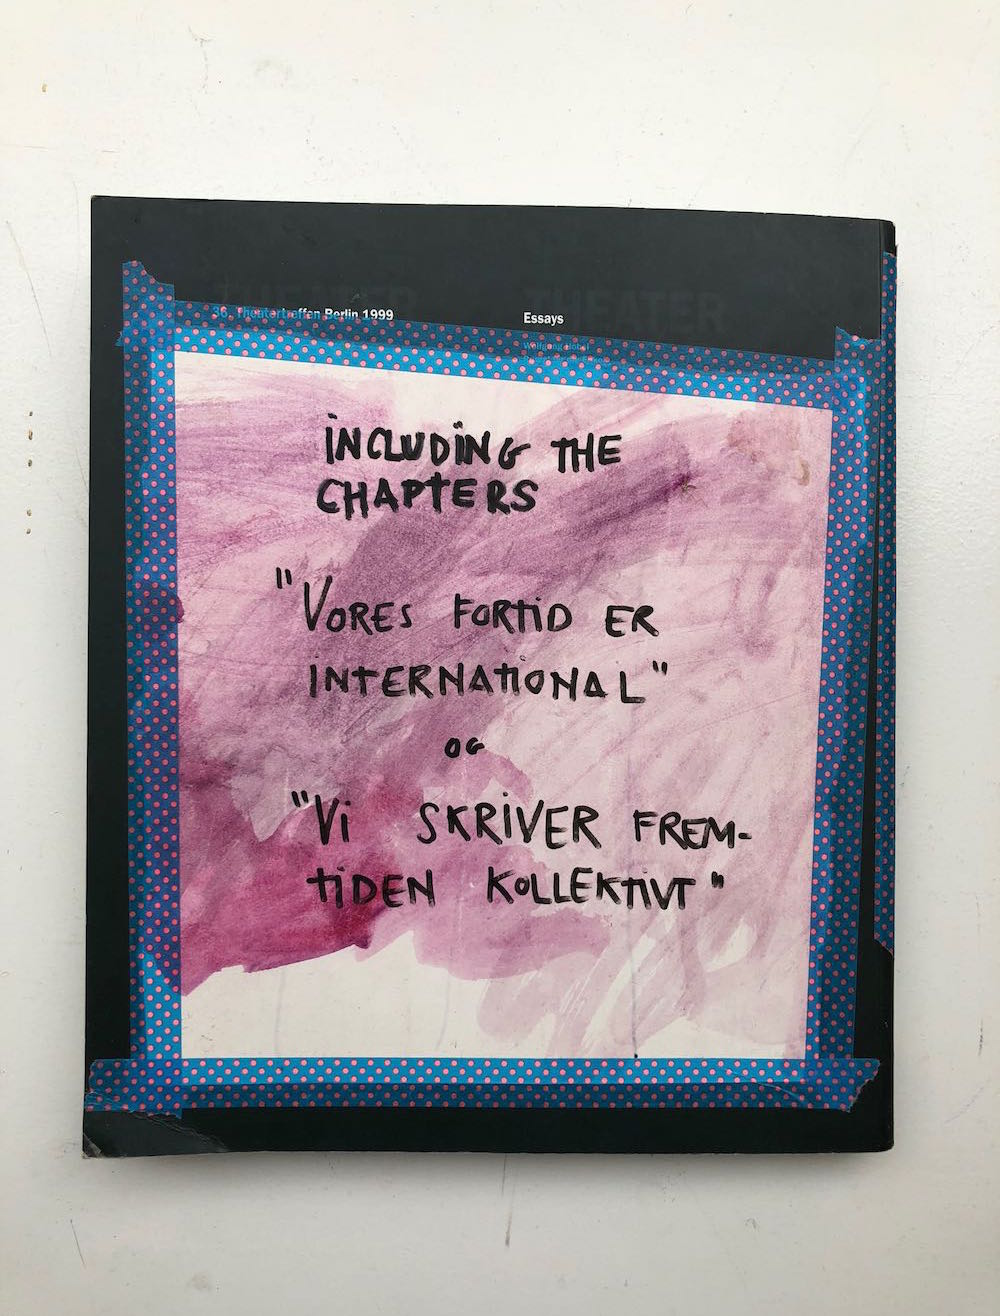 THEATER THEATER
36. Theatertreffen Berlin 1999 Essays
Wolfgang Höbel
INCLUDING THE
CHAPTERS
"VORES FORTID ER
INTERNATIONAL"
OG
"VI SKRIVER FREM-
TIDEN KOLLEKTIVT"